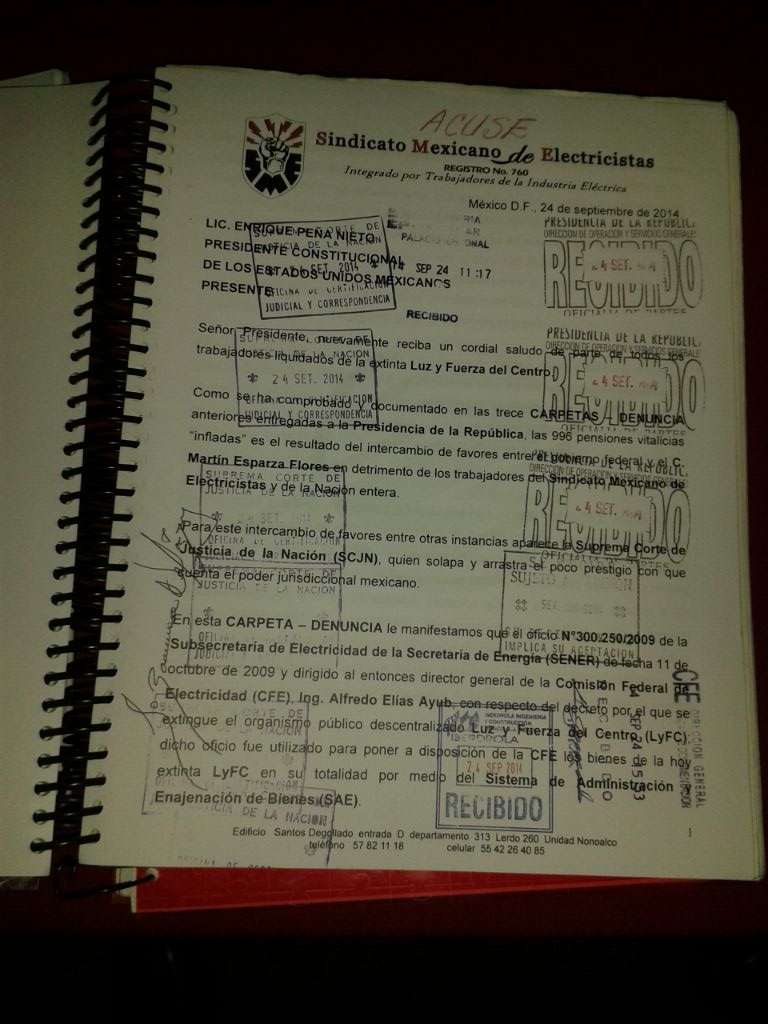 ACUSE
SME
Sindicato Mexicano de Electricistas
REGISTRO No. 760
Integrado por Trabajadores de la Industria Eléctrica
México D.F., 24 de septiembre de 2014
LIC. ENRIQUE PEÑA NIETO
PRESIDENTE CONSTITUCIONAL
DE LOS ESTADOS UNIDOS MEXICANOS
PRESENTE
SUPREMA CORTE DE
JUSTICIA DE LA NACIÓN
24 SET. 2014
OFICINA DE CERTIFICACIÓN
JUDICIAL Y CORRESPONDENCIA
'14 SEP 24 11:17
RECIBIDO
PRESIDENCIA DE LA REPÚBLICA
DIRECCION DE OPERACION Y SERVICIOS GENERALES
RECIBIDO
24 SET.
OFICIALIA DE PARTES
Señor Presidente, nuevamente reciba un cordial saludo de parte de todos los
trabajadores liquidados de la extinta Luz y Fuerza del Centro.
SUPREMA CORTE DE
JUSTICIA DE LA NACION
24 SET. 2014
OFICINA DE CERTIFICACION
JUDICIAL Y CORRESPONDENCIA
PRESIDENCIA DE LA REPUBLIC.
DIRECCION DE OPERACION Y SERVICIOS GENERALES
RECIBIDO
4 SET.
OFICIALIA DE PARTES
Como se ha comprobado y documentado en las trece CARPETAS – DENUNCIA
anteriores entregadas a la Presidencia de la República, las 996 pensiones vitalicias
“infladas” es el resultado del intercambio de favores entre el gobierno federal y el C.
Martín Esparza Flores en detrimento de los trabajadores del Sindicato Mexicano de
Electricistas y de la Nación entera.
SUPREMA CORTE DE
JUSTICIA DE LA NACION
OFICINA DE CERTIFICACION
RECIBIDO
4 SET.
OFICIALIA DE PARTES
Para este intercambio de favores entre otras instancias aparece la Suprema Corte de
Justicia de la Nación (SCJN), quien solapa y arrastra el poco prestigio con que
cuenta el poder jurisdiccional mexicano.
SUPREMA CORTE DE
JUSTICIA DE LA NACION
SUJETO A REVISION
IMPLICA SU ACEPTACION
En esta CARPETA – DENUNCIA le manifestamos que el oficio N°300.250/2009 de la
Subsecretaria de Electricidad de la Secretaria de Energía (SENER) de fecha 11 de
octubre de 2009 y dirigido al entonces director general de la Comisión Federal de
Electricidad (CFE), Ing. Alfredo Elías Ayub, con respecto del decreto por el que se
extingue el organismo público descentralizado Luz y Fuerza del Centro (LyFC),
dicho oficio fue utilizado para poner a disposición de la CFE los bienes de la hoy
extinta LyFC en su totalidad por medio del Sistema de Administración y
Enajenación de Bienes (SAE).
CFE
DIRECCION GENERAL
IBERDROLA INGENIERIA
Y CONSTRUCCION
IBERDROLA
24 SEP 2014
RECIBIDO
CIA DE LA NACION
Edificio Santos Degollado entrada D departamento 313 Lerdo 260 Unidad Nonoalco
teléfono 57 82 11 18 celular 55 42 26 40 85
1